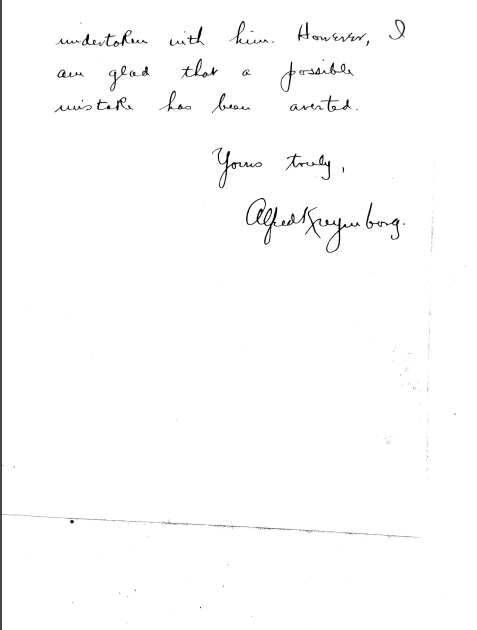 undertaken with him. However, I
am glad that a possible
mistake has been averted.
Yours truly,
Alfred Kreymborg.